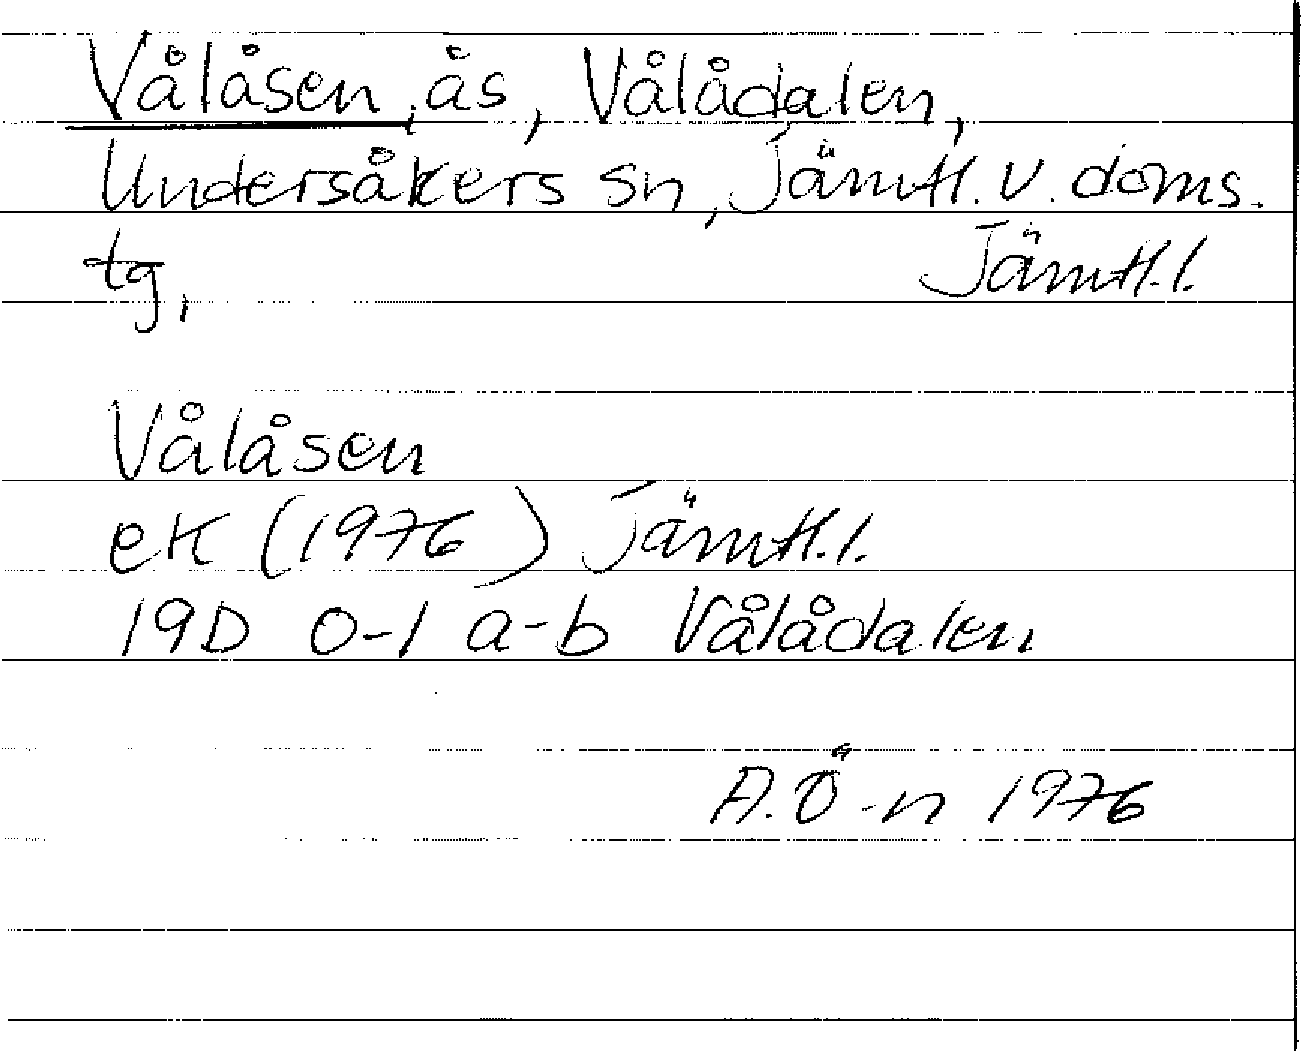 Vålåsen, ås, Vålådalen,
Undersåkers sn, Jämtl. v. doms.
tg, Jämtl. l.
Vålåsen
ek (1976) Jämtl. l.
19D 0-1 a-b Vålådalen
A. Ö-n 1976